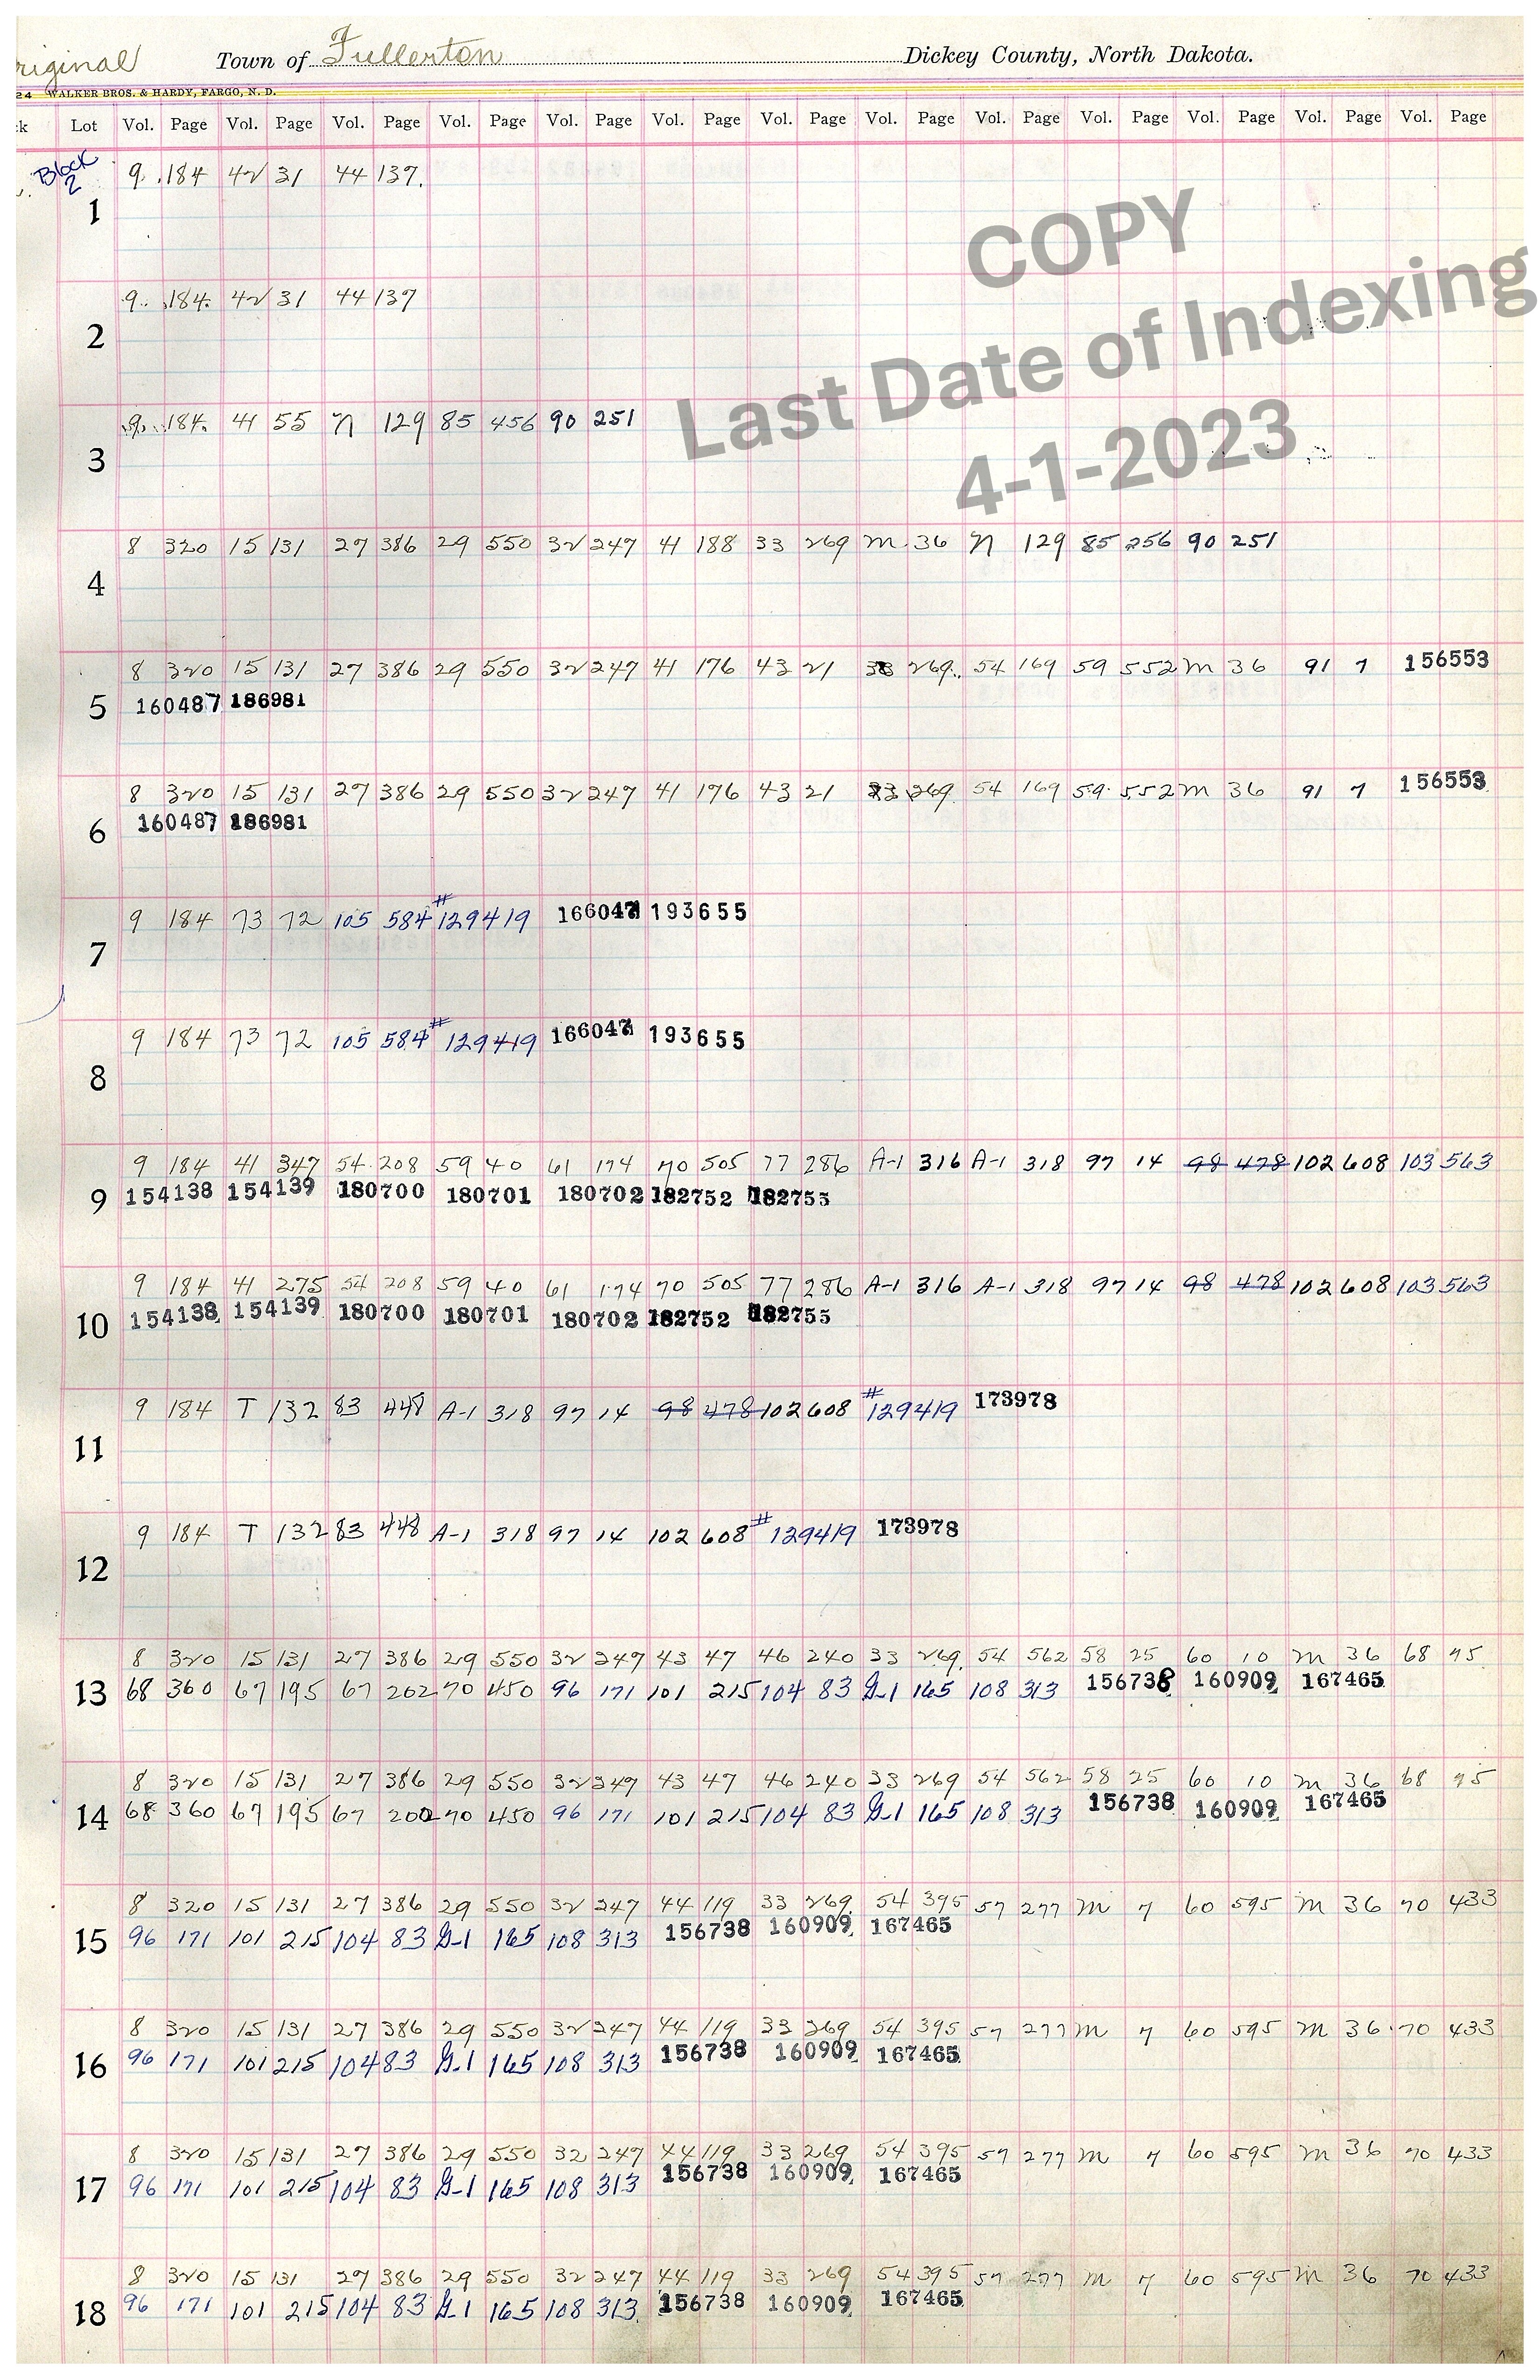 riginal Town of Fullerton Dickey County, North Dakota.
24 WALKER BROS. & HARDY, FARGO, N. D.
k Lot Vol. Page Vol. Page Vol. Page Vol. Page Vol. Page Vol. Page Vol. Page Vol. Page Vol. Page Vol. Page Vol. Page Vol. Page Vol. Page
Block
2
9 184 42 31 44 137.
1
COPY
Last Date of Indexing
4-1-2023
9 184 42 31 44 137
2
9 184 41 55 N 129 85 456 90 251
3
8 320 15 131 27 386 29 550 32 247 41 188 33 269 M 36 N 129 85 256 90 251
4
8 320 15 131 27 386 29 550 32 247 41 176 43 21 33 269 54 169 59 552 M 36 91 7 156553
5 160487 186981
8 320 15 131 27 386 29 550 32 247 41 176 43 21 33 269 54 169 59 552 M 36 91 7 156553
6 160487 186981
9 184 73 72 105 584 #129419 166047 193655
7
9 184 73 72 105 584 #129419 166047 193655
8
9 184 41 347 54 208 59 40 61 174 70 505 77 286 A-1 316 A-1 318 97 14 98 478 102 608 103 563
9 154138 154139 180700 180701 180702 182752 182755
9 184 41 275 54 208 59 40 61 174 70 505 77 286 A-1 316 A-1 318 97 14 98 478 102 608 103 563
10 154138 154139 180700 180701 180702 182752 182755
9 184 T 132 83 448 A-1 318 97 14 98 478 102 608 #129419 173978
11
9 184 T 132 83 448 A-1 318 97 14 102 608 #129419 173978
12
8 320 15 131 27 386 29 550 32 247 43 47 46 240 33 269 54 562 58 25 60 10 M 36 68 95
13 68 360 67 195 67 202 70 450 96 171 101 215 104 83 G-1 165 108 313 156738 160909 167465
8 320 15 131 27 386 29 550 32 347 43 47 46 240 33 269 54 562 58 25 60 10 M 36 68 95
14 68 360 67 195 67 200 70 450 96 171 101 215 104 83 G-1 165 108 313 156738 160909 167465
8 320 15 131 27 386 29 550 32 247 44 119 33 269 54 395 57 277 M 7 60 595 M 36 70 433
15 96 171 101 215 104 83 G-1 165 108 313 156738 160909 167465
8 320 15 131 27 386 29 550 32 247 44 119 33 269 54 395 57 277 M 7 60 595 M 36 70 433
16 96 171 101 215 104 83 G-1 165 108 313 156738 160909 167465
8 320 15 131 27 386 29 550 32 247 44 119 33 269 54 395 57 277 M 7 60 595 M 36 70 433
17 96 171 101 215 104 83 G-1 165 108 313 156738 160909 167465
8 320 15 131 27 386 29 550 32 247 44 119 33 269 54 395 57 277 M 7 60 595 M 36 70 433
18 96 171 101 215 104 83 G-1 165 108 313 156738 160909 167465